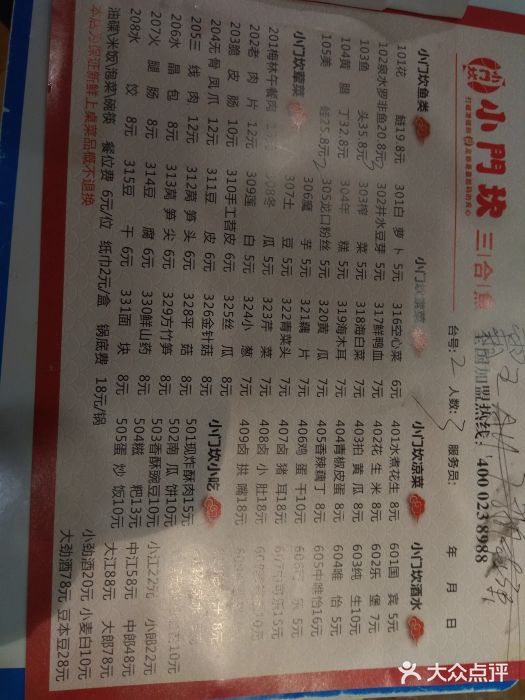 小門坎 三合鱼
加盟热线：400 023 8988
台号：2 人数：3 服务员： 年 月 日
小门坎鱼类
101花鲢19.8元
102泉水罗非鱼20.8元
103鱼头35.8元
104黄腊丁32.8元
105美蛙25.8元
小门坎荤菜
201梅林午餐肉
202老肉片12元
203脆皮肠10元
204无骨凤爪12元
205三线肉12元
206水晶包8元
207火腿肠8元
208水饺8元
301白萝卜5元
302井水豆芽5元
303榨菜5元
304年糕5元
305龙口粉丝5元
306魔芋5元
307土豆5元
308冬瓜5元
309莲白5元
310手工苕皮6元
311豆皮6元
312莴笋头6元
313莴笋尖6元
314豆腐6元
315豆干6元
316空心菜6元
317鲜鸭血7元
318海白菜7元
319海木耳7元
320黄瓜7元
321藕片7元
322青菜头7元
323芹菜7元
324小葱7元
325丝瓜8元
326金针菇8元
328平菇8元
329方竹笋8元
330鲜山药8元
331面块8元
小门坎凉菜
401水煮花生8元
402花生米8元
403拍黄瓜8元
404青椒皮蛋8元
405香辣藕丁8元
406鸡蛋干10元
407卤猪耳18元
408卤小肚18元
409卤拱嘴18元
小门坎小吃
501现炸酥肉15元
502南瓜饼10元
503香酥豌豆10元
504糍粑13元
505蛋炒饭10元
小门坎酒水
601国宾5元
602乐堡7元
603纯生10元
604唯怡5元
605中唯怡16元
小江22元 小郎22元
中江58元 中郎48元
大江88元 大郎78元
小劲酒20元 小麦白10元
大劲酒78元 豆本豆28元
油碟\米饭\泡菜\碗筷 餐位费 6元/位 纸巾2元/盒 锅底费 18元/锅
本店为保证新鲜上桌菜品概不退换
大众点评